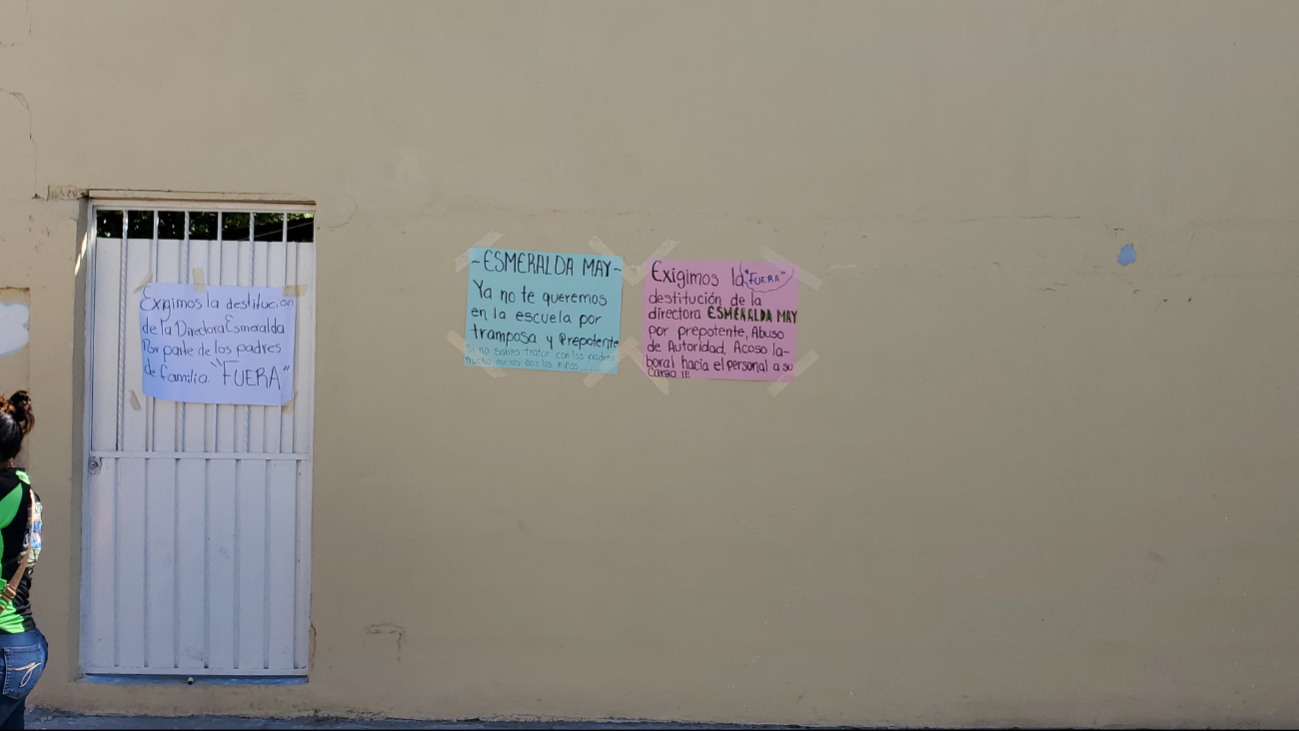 Exigimos la destitución
de la Directora Esmeralda
Por parte de los padres
de familia. "FUERA"
-ESMERALDA MAY-
Ya no te queremos
en la escuela por
tramposa y Prepotente
Si no sabes tratar con los padres
mucho menos con los niños....
Exigimos la "FUERA"
destitución de la
directora ESMERALDA MAY
por prepotente, Abuso
de Autoridad, Acoso la-
boral hacia el personal a su
cargo !!!